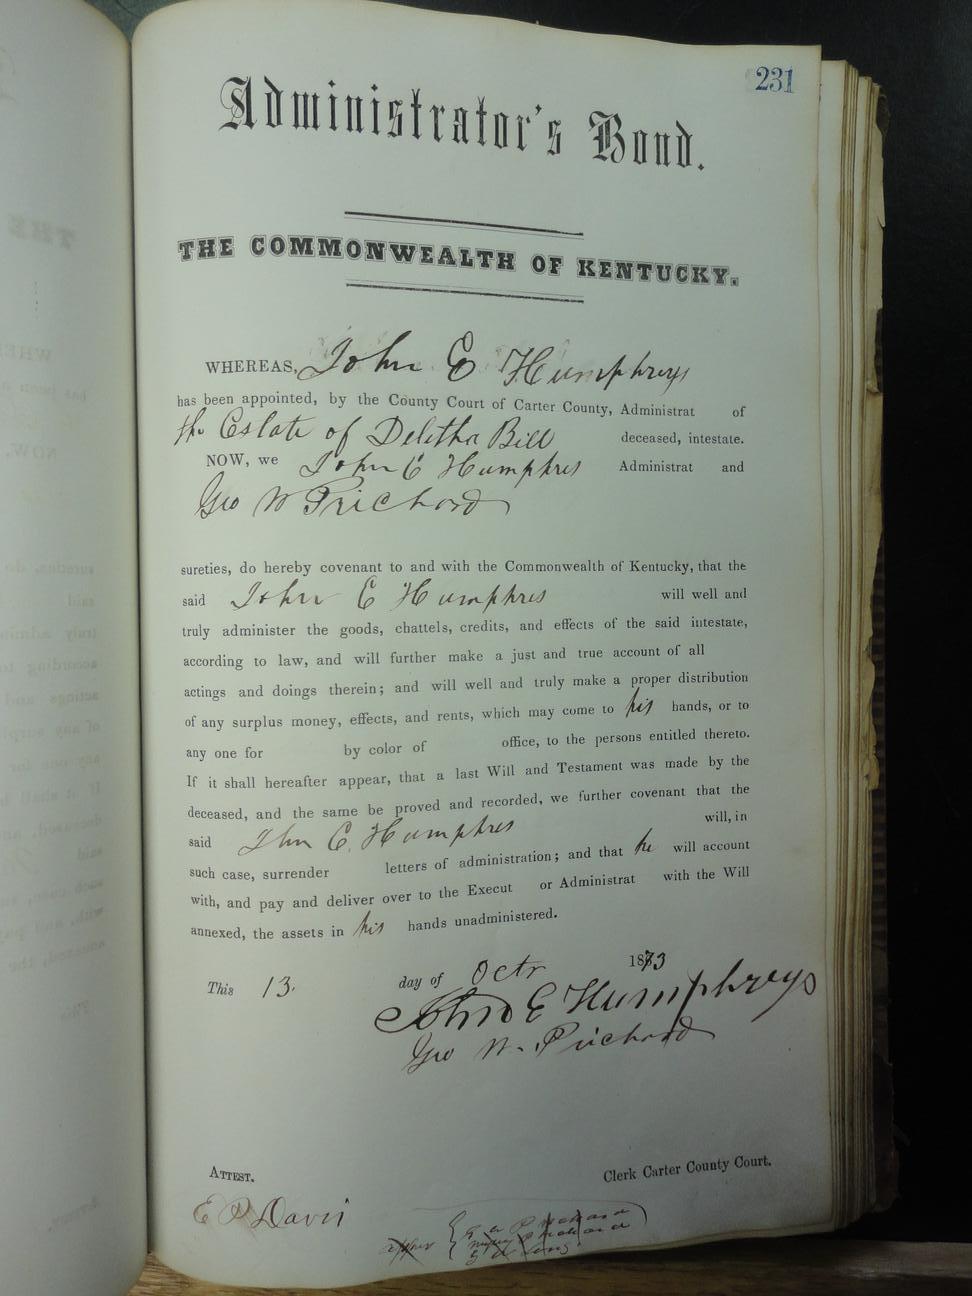 231
Administrator's Bond.
THE COMMONWEALTH OF KENTUCKY.
WHEREAS, John E Humphreys
has been appointed, by the County Court of Carter County, Administrat of
the Estate of Delitha Bill deceased, intestate.
NOW, we John E Humphres Administrat and
Geo W Prichard
sureties, do hereby covenant to and with the Commonwealth of Kentucky, that the
said John E Humphres will well and
truly administer the goods, chattels, credits, and effects of the said intestate,
according to law, and will further make a just and true account of all
actings and doings therein; and will well and truly make a proper distribution
of any surplus money, effects, and rents, which may come to his hands, or to
any one for by color of office, to the persons entitled thereto.
If it shall hereafter appear, that a last Will and Testament was made by the
deceased, and the same be proved and recorded, we further covenant that the
said Jhn E. Humphres will, in
such case, surrender letters of administration; and that he will account
with, and pay and deliver over to the Execut or Administrat with the Will
annexed, the assets in his hands unadministered.
This 13. day of Octr 1873
John E Humphreys
Geo W. Prichard
ATTEST. Clerk Carter County Court.
E P Davis
Prichard
Prichard